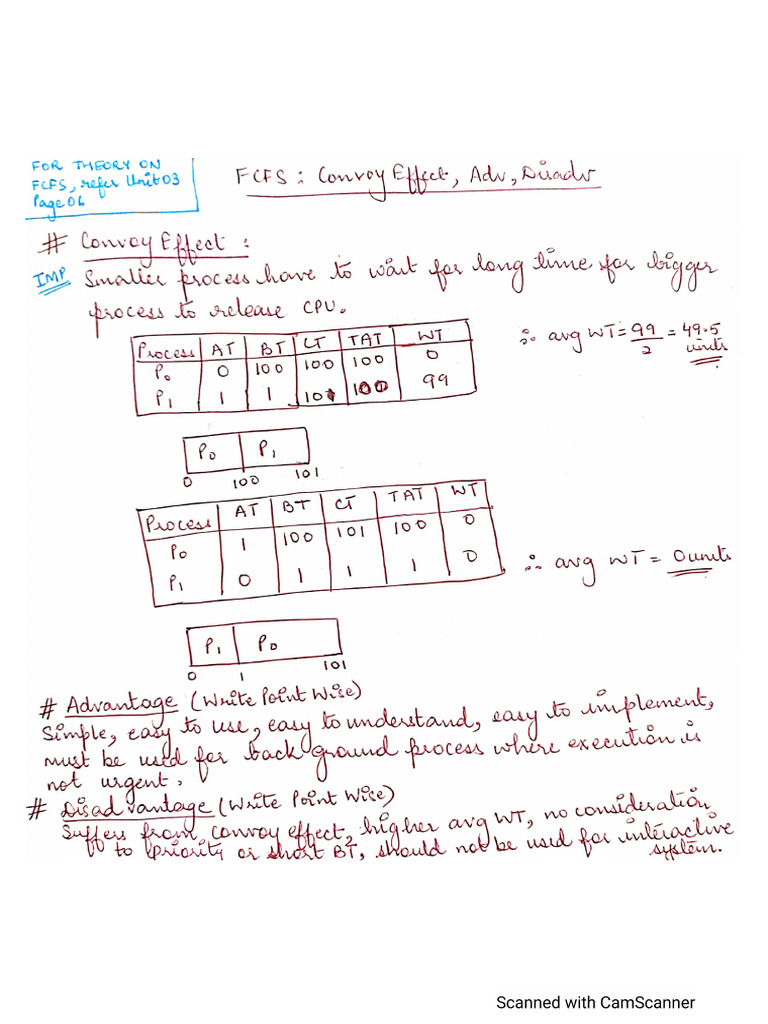 FOR THEORY ON
FCFS, refer Unit 03
Page 06
FCFS : Convoy Effect, Adv, Disadv
# Convoy Effect :
IMP Smaller process have to wait for long time for bigger
process to release CPU.
Process AT BT CT TAT WT
P0 0 100 100 100 0
P1 1 1 101 100 99
∴ avg WT = 99/2 = 49.5
units
P0 P1
0 100 101
Process AT BT CT TAT WT
P0 1 100 101 100 0
P1 0 1 1 1 0
∴ avg WT = 0 units
P1 P0
0 1 101
# Advantage (Write Point Wise)
Simple, easy to use, easy to understand, easy to implement,
must be used for back ground process where execution is
not urgent.
# Disadvantage (Write Point Wise)
Suffers from convoy effect, higher avg WT, no consideration
to priority or short BT, should not be used for interactive
system.
Scanned with CamScanner